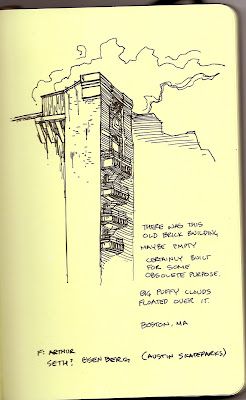 THERE WAS THIS
OLD BRICK BUILDING,
MAYBE EMPTY
CERTAINLY BUILT
FOR SOME
OBSOLETE PURPOSE.
BIG PUFFY CLOUDS
FLOATED OVER IT.
BOSTON, MA
F: ARTHUR
SETH? EISENBERG (AUSTIN SKATEPARKS)